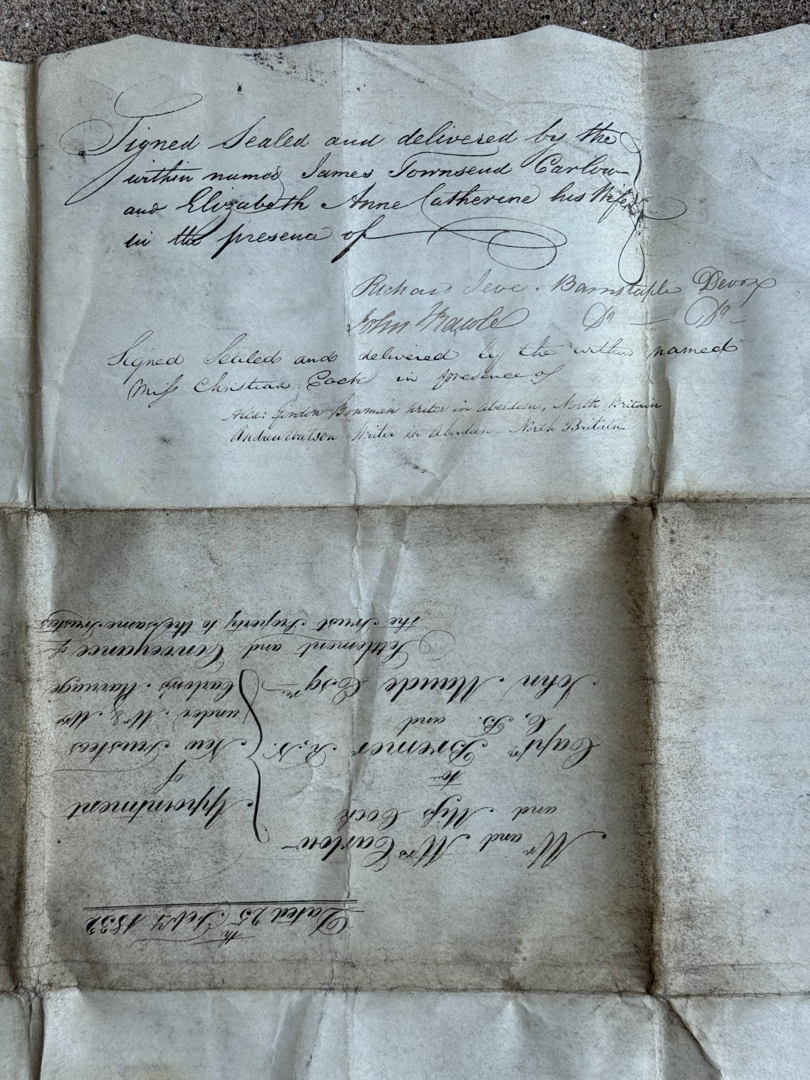 Signed Sealed and delivered by the
within named James Townsend Carlow
and Elizabeth Anne Catherine his Wife
in the presence of
Richard Barnstaple Devon
John Do — Do
Signed Sealed and delivered by the within named
Miss Christian Cock in presence of
Alexr: Gordon Bowman Writer in Aberdeen, North Britain
Andrew Watson Writer in Aberdeen North Britain
Dated 25th Feby 1832
Mr and Mrs Carlow
and Miss Cock
to
Captn Bremer R.N.
C.B. and
John Maude Esqre
Appointment
of
New Trustees
under Mr & Mrs
Carlow's Marriage
Settlement and Conveyance of
the Trust Property to the same Trustees